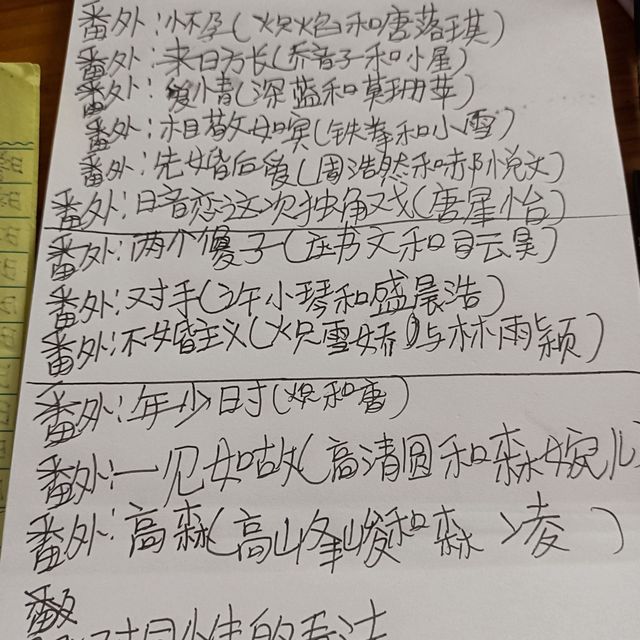 番外:怀孕(炽焰和唐落琪)
番外:来日方长(乔音子和小星)
番外:爱情(深蓝和莫珊苹)
番外:相敬如宾(铁拳和小雪)
番外:先婚后爱(周浩然和郝悦文)
番外:暗恋这次独角戏(唐犀怡)
番外:两个傻子(庄书文和自云昊)
番外:对手(许小琴和盛晨浩)
番外:不婚主义(炽雪娇与林雨颖)
番外:年少时(炽和唐)
番外:一见如故(高清圆和森婉儿
番外:高森(高山峰峻和森凌)